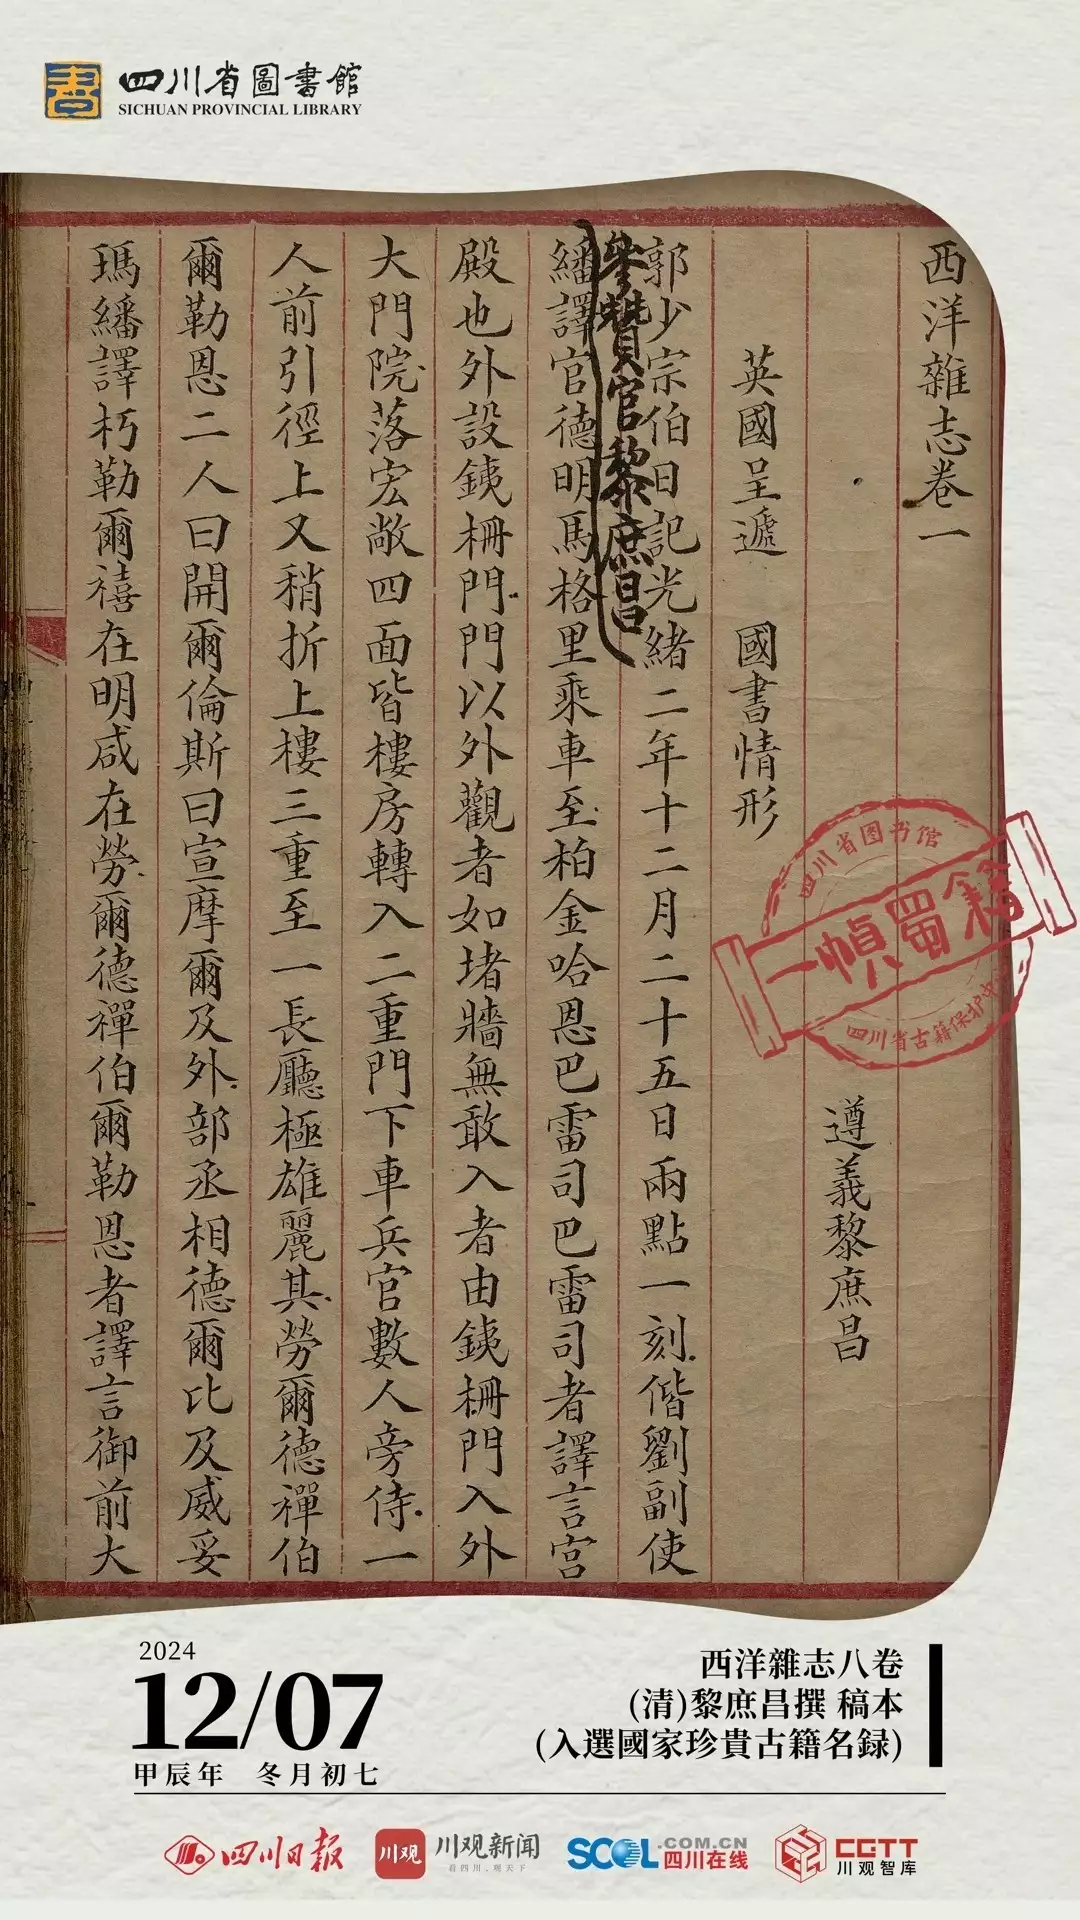 四川省圖書館
SICHUAN PROVINCIAL LIBRARY
西洋雜志卷一
遵義黎庶昌
英國呈遞 國書情形
郭少宗伯日記光緒二年十二月二十五日兩點一刻偕劉副使
參贊官黎庶昌
繙譯官德明馬格里乘車至柏金哈恩巴雷司巴雷司者譯言宮
殿也外設銕柵門門以外觀者如堵牆無敢入者由銕柵門入外
大門院落宏敞四面皆樓房轉入二重門下車兵官數人旁侍一
人前引徑上又稍折上樓三重至一長廳極雄麗其勞爾德禪伯
爾勒恩二人曰開爾倫斯曰宣摩爾及外部丞相德爾比及威妥
瑪繙譯朽勒爾禧在明咸在勞爾德禪伯爾勒恩者譯言御前大
四川省图书馆
一幀蜀籍
四川省古籍保护中
2024
12/07
甲辰年 冬月初七
西洋雜志八卷
(清)黎庶昌撰 稿本
(入選國家珍貴古籍名録)
四川日报
川观
川观新闻
看四川，观天下
SCOL.COM.CN
四川在线
CGTT
川观智库